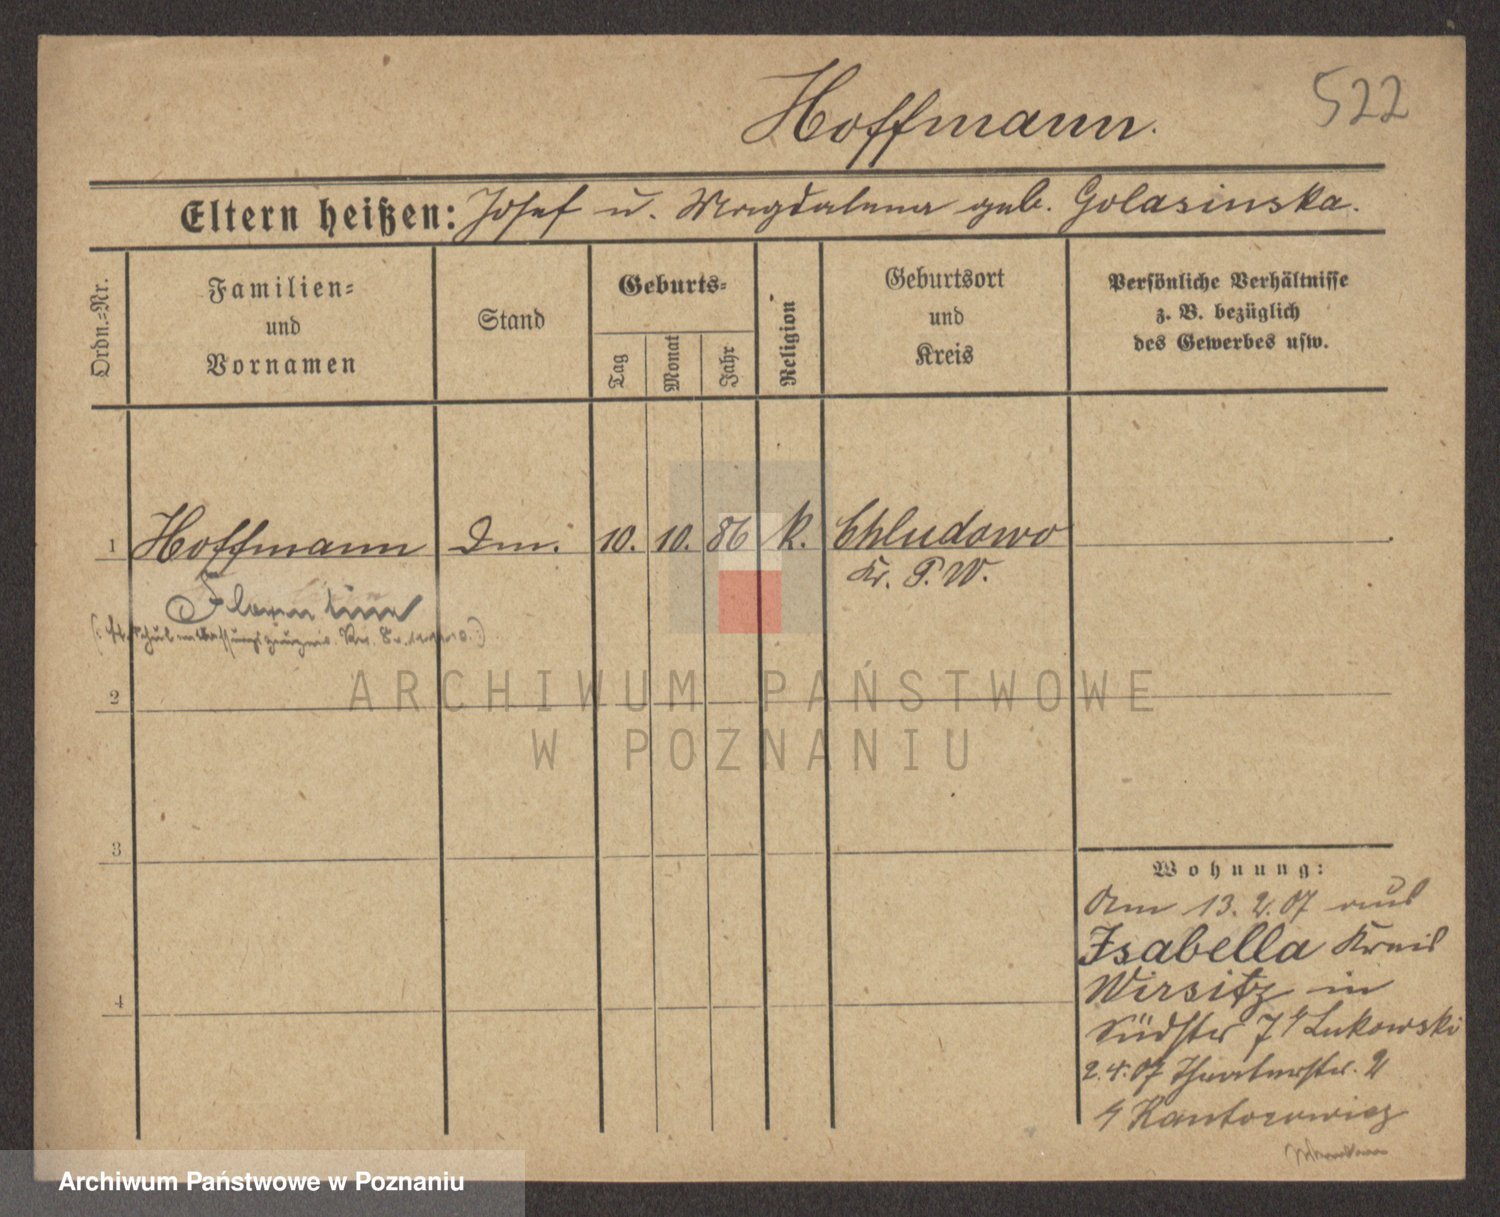 Hoffmann.
522
Eltern heißen: Josef u. Magdalena geb. Golasinska.
Ordn.-Nr.
Familien-
und
Vornamen
Stand
Geburts-
Tag
Monat
Jahr
Religion
Geburtsort
und
Kreis
Persönliche Verhältnisse
z. B. bezüglich
des Gewerbes usw.
1 Hoffmann 10. 10. 86 k. Chludowo
Kr. P. W.
Florentine
2
3
4
ARCHIWUM PAŃSTWOWE
W POZNANIU
Wohnung:
Am 13. 2. 07 aus
Isabella Kreis
Wirsitz in
Südstr 7 Lukowski
2.4.07 Theaterstr. 2
Kantorowicz
Archiwum Państwowe w Poznaniu